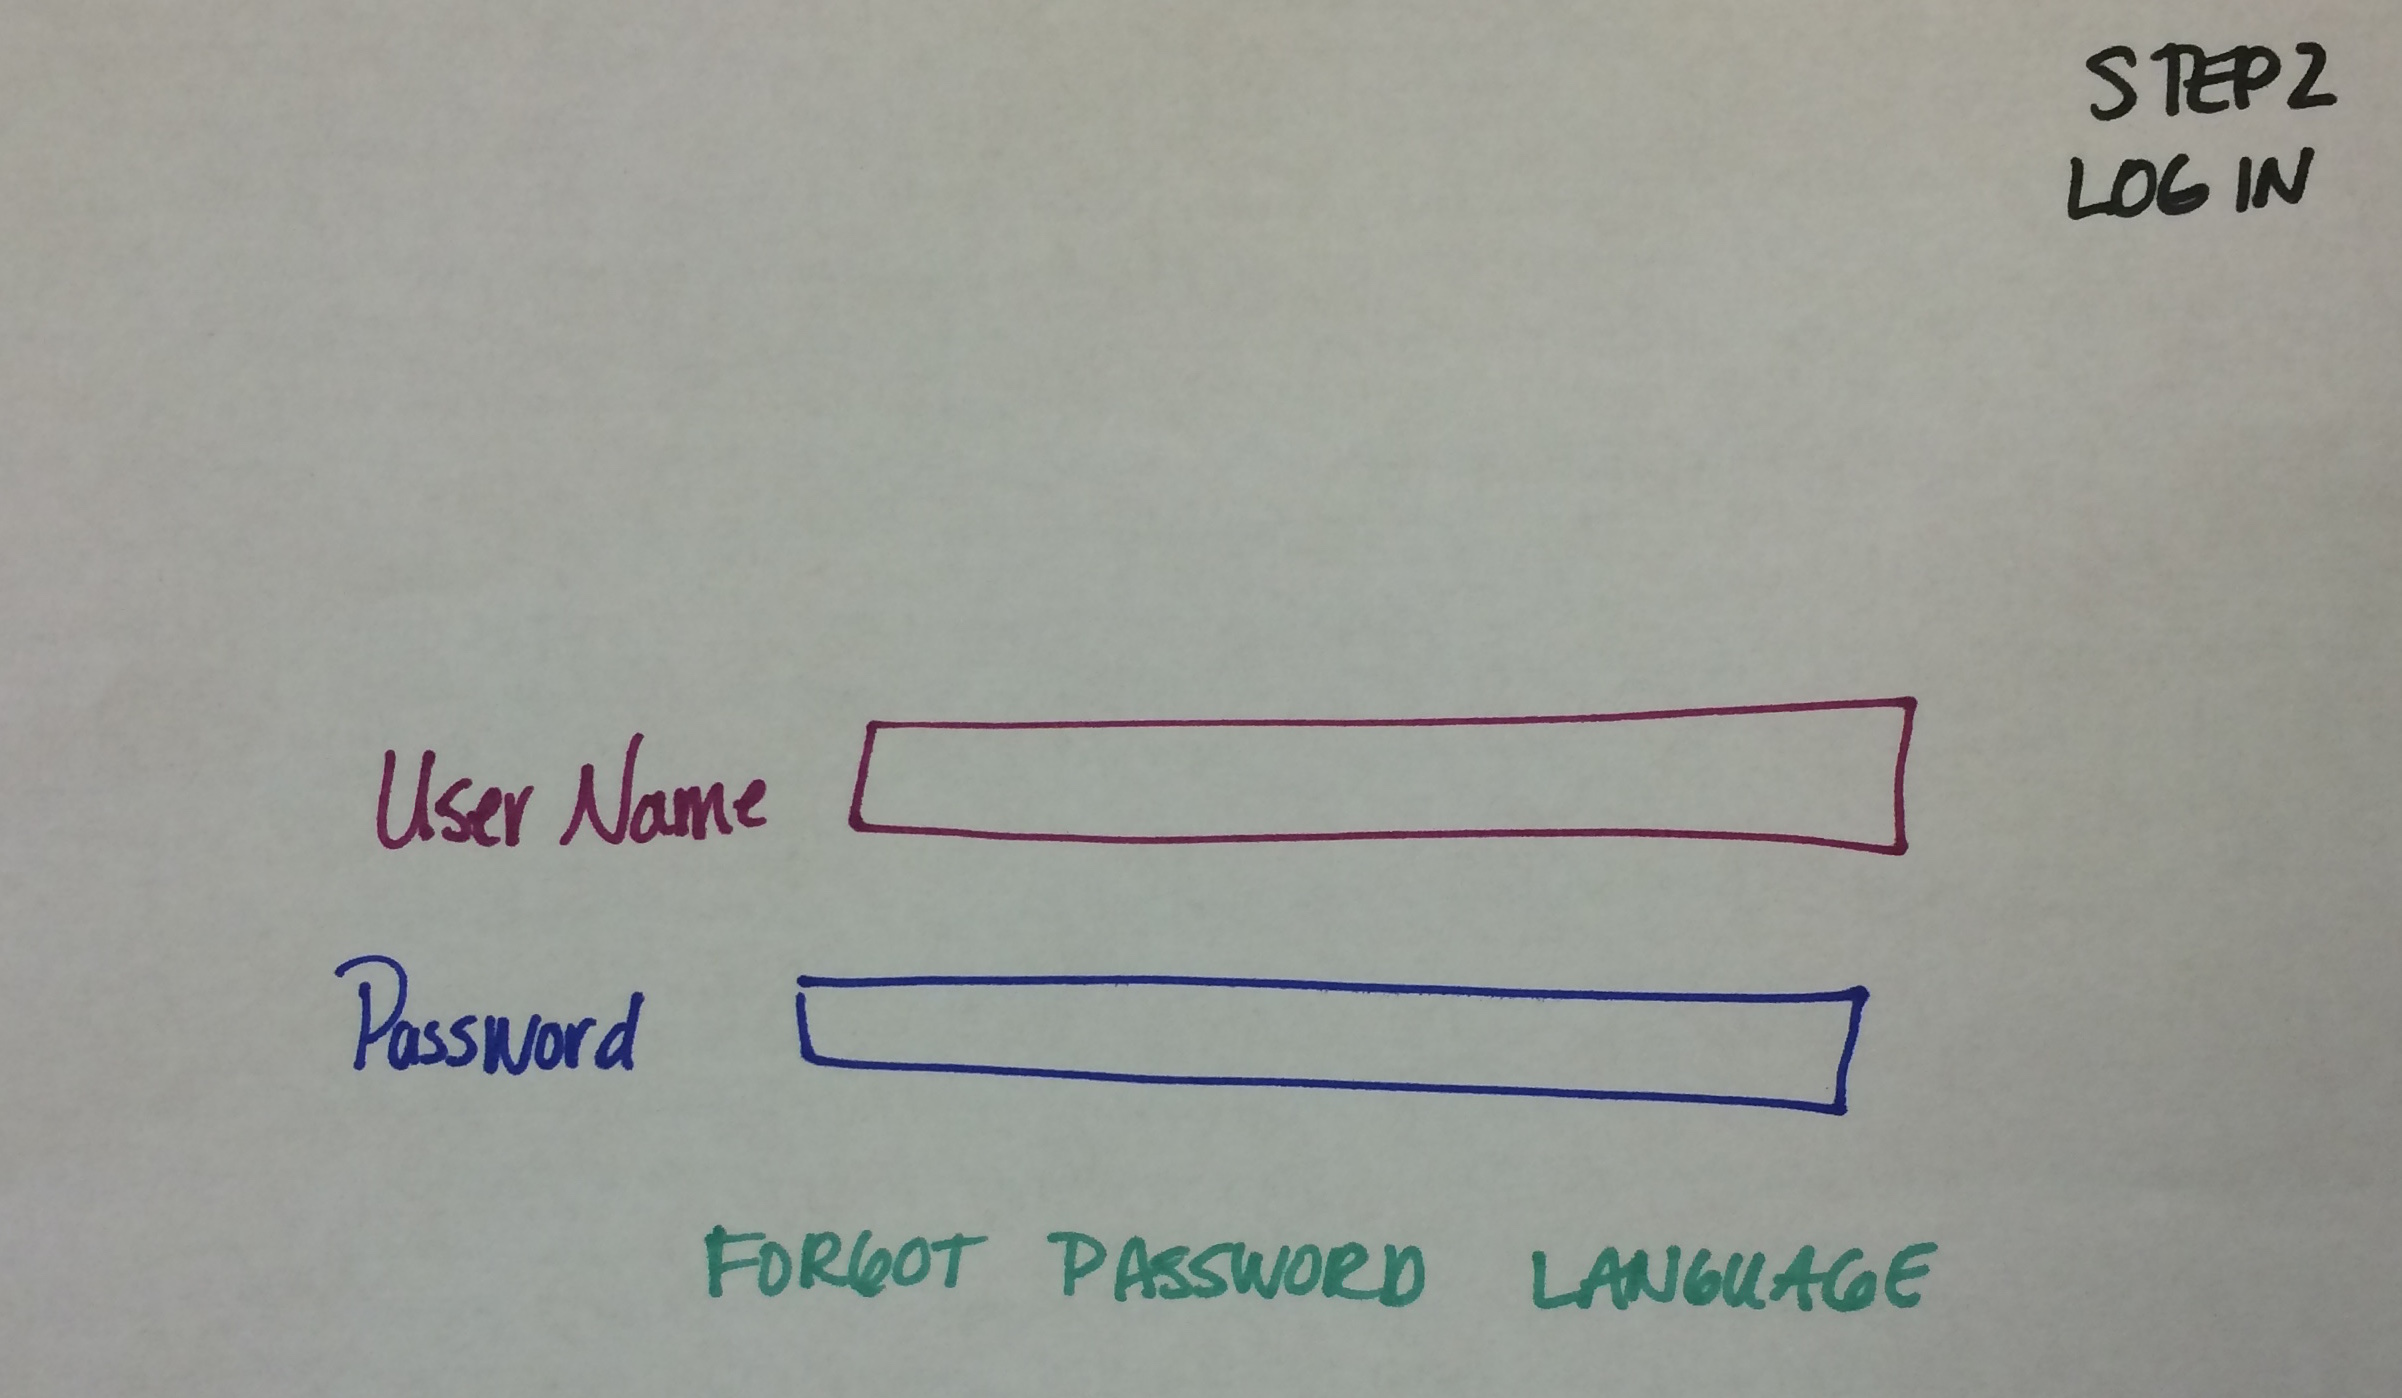 STEP 2
LOG IN
User Name
Password
FORGOT PASSWORD LANGUAGE